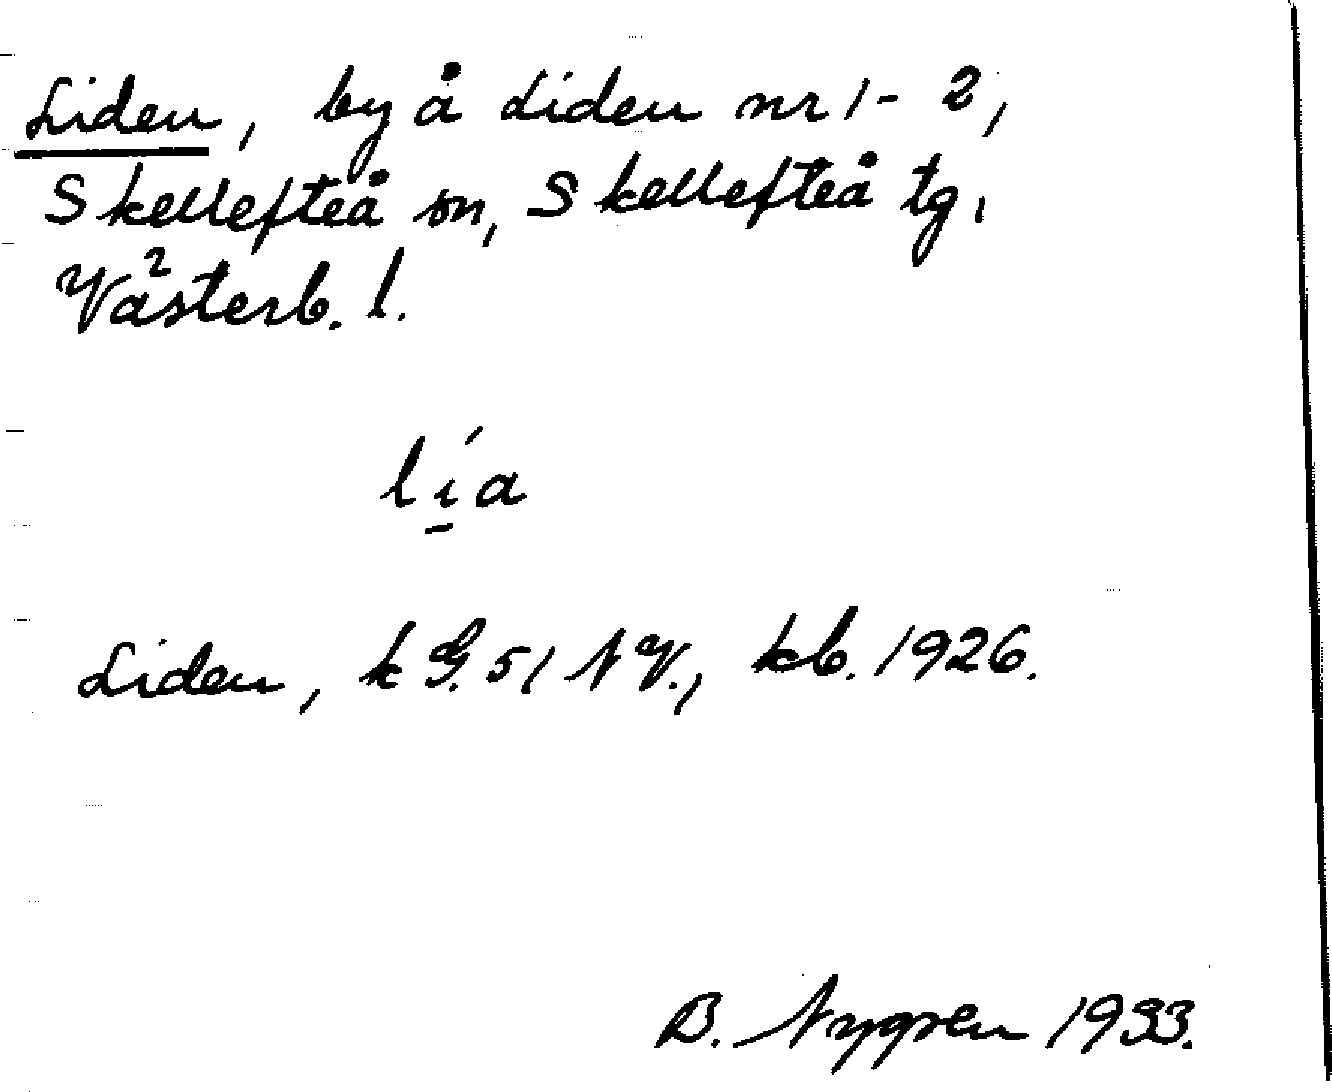 Liden, by å Liden nr 1-2,
Skellefteå sn, Skellefteå tg,
Västerb. l.
lí̱a
Liden, k G. 51 NV., kb. 1926.
B. Nygren 1933.